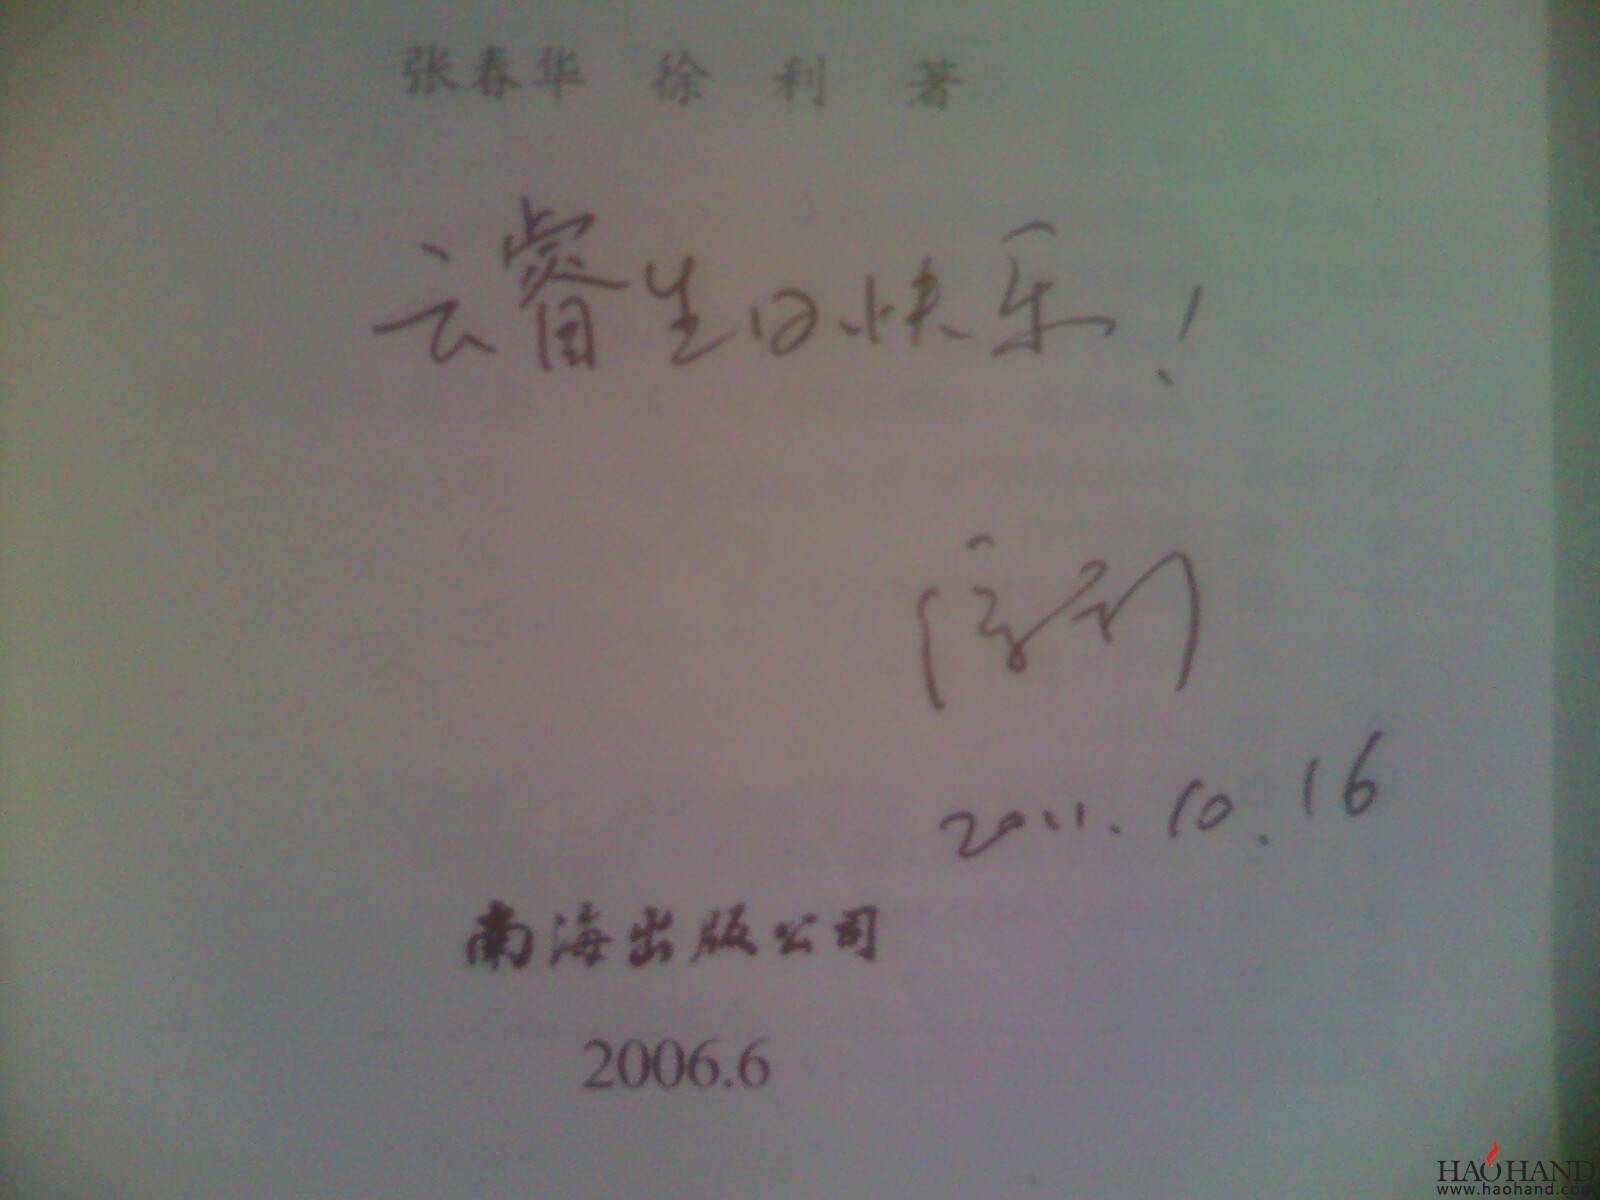 张春华 徐 利 著
云睿生日快乐！
徐利
2011.10.16
南海出版公司
2006.6
HAOHAND
www.haohand.com